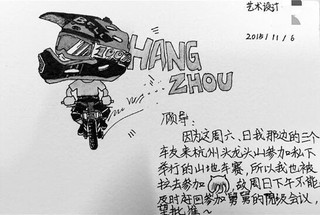 艺术设计
2018/11/6
HANG
ZHOU
顾导:
因为这周六、日我那边的三个
车友来杭州头龙头山参加私下
举行的山地车赛,所以我也被
拉去参加,故周日下午不能
及时赶回参加舅舅的
望批准~